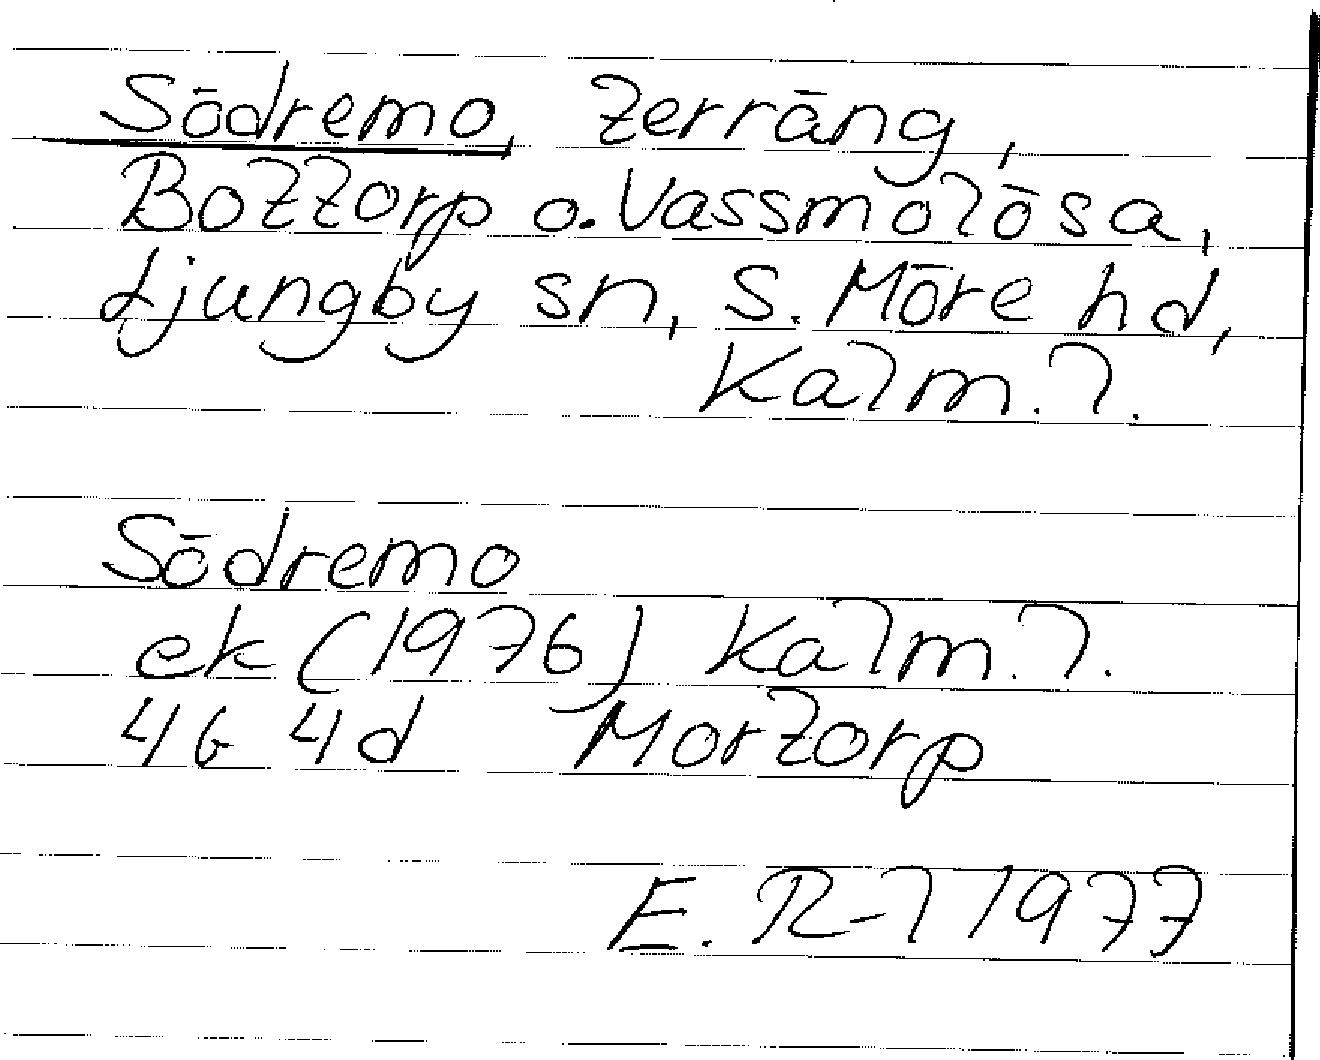 Södremo, terräng,
Bottorp o. Vassmolösa,
Ljungby sn, S. Möre hd,
Kalm. l.
Södremo
ek (1976) Kalm. l.
4G 4d Mortorp
E. R-l 1977